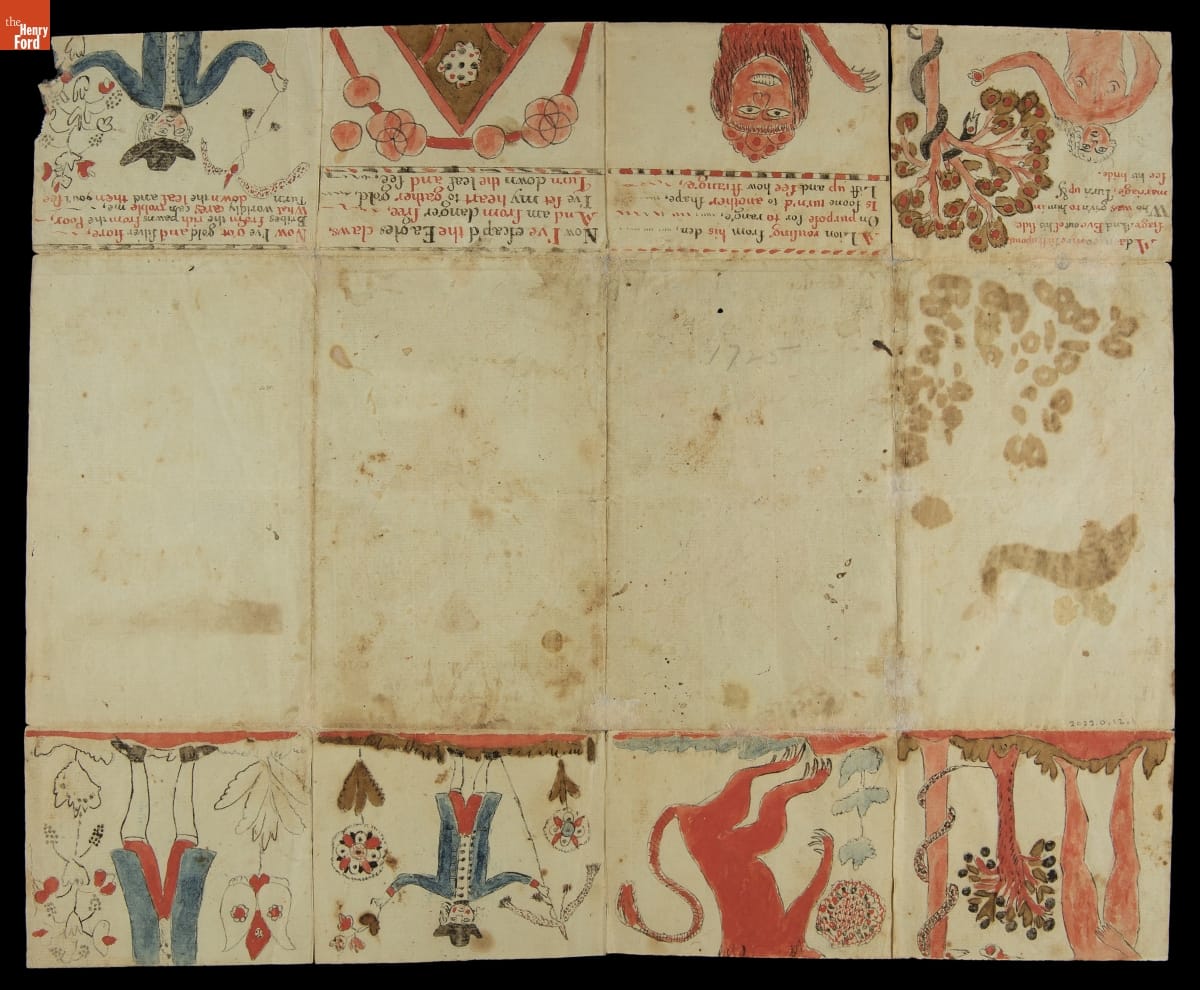 the
Henry
Ford
Now I've got gold and ſilver ſtore,
from the rich pawns from the Poor,
What worldly cares can troble me,
Turn down the leaf and then you'l ſee
Now I've eſcapd the Eagles claws,
And am from danger free,
I've ſet my heart to gather gold
Turn down the leaf and ſee
A Lion rouſing from his den,
On purpoſe for to range,
Is ſoone turn'd to another ſhape,
Lift up and ſee how ſtrange,
Adam comes firſt upon
ſtage And Eve out of his ſide
Who was given to him in
marriage, Turn up &
ſee his bride.
1725
2022.0.12.1